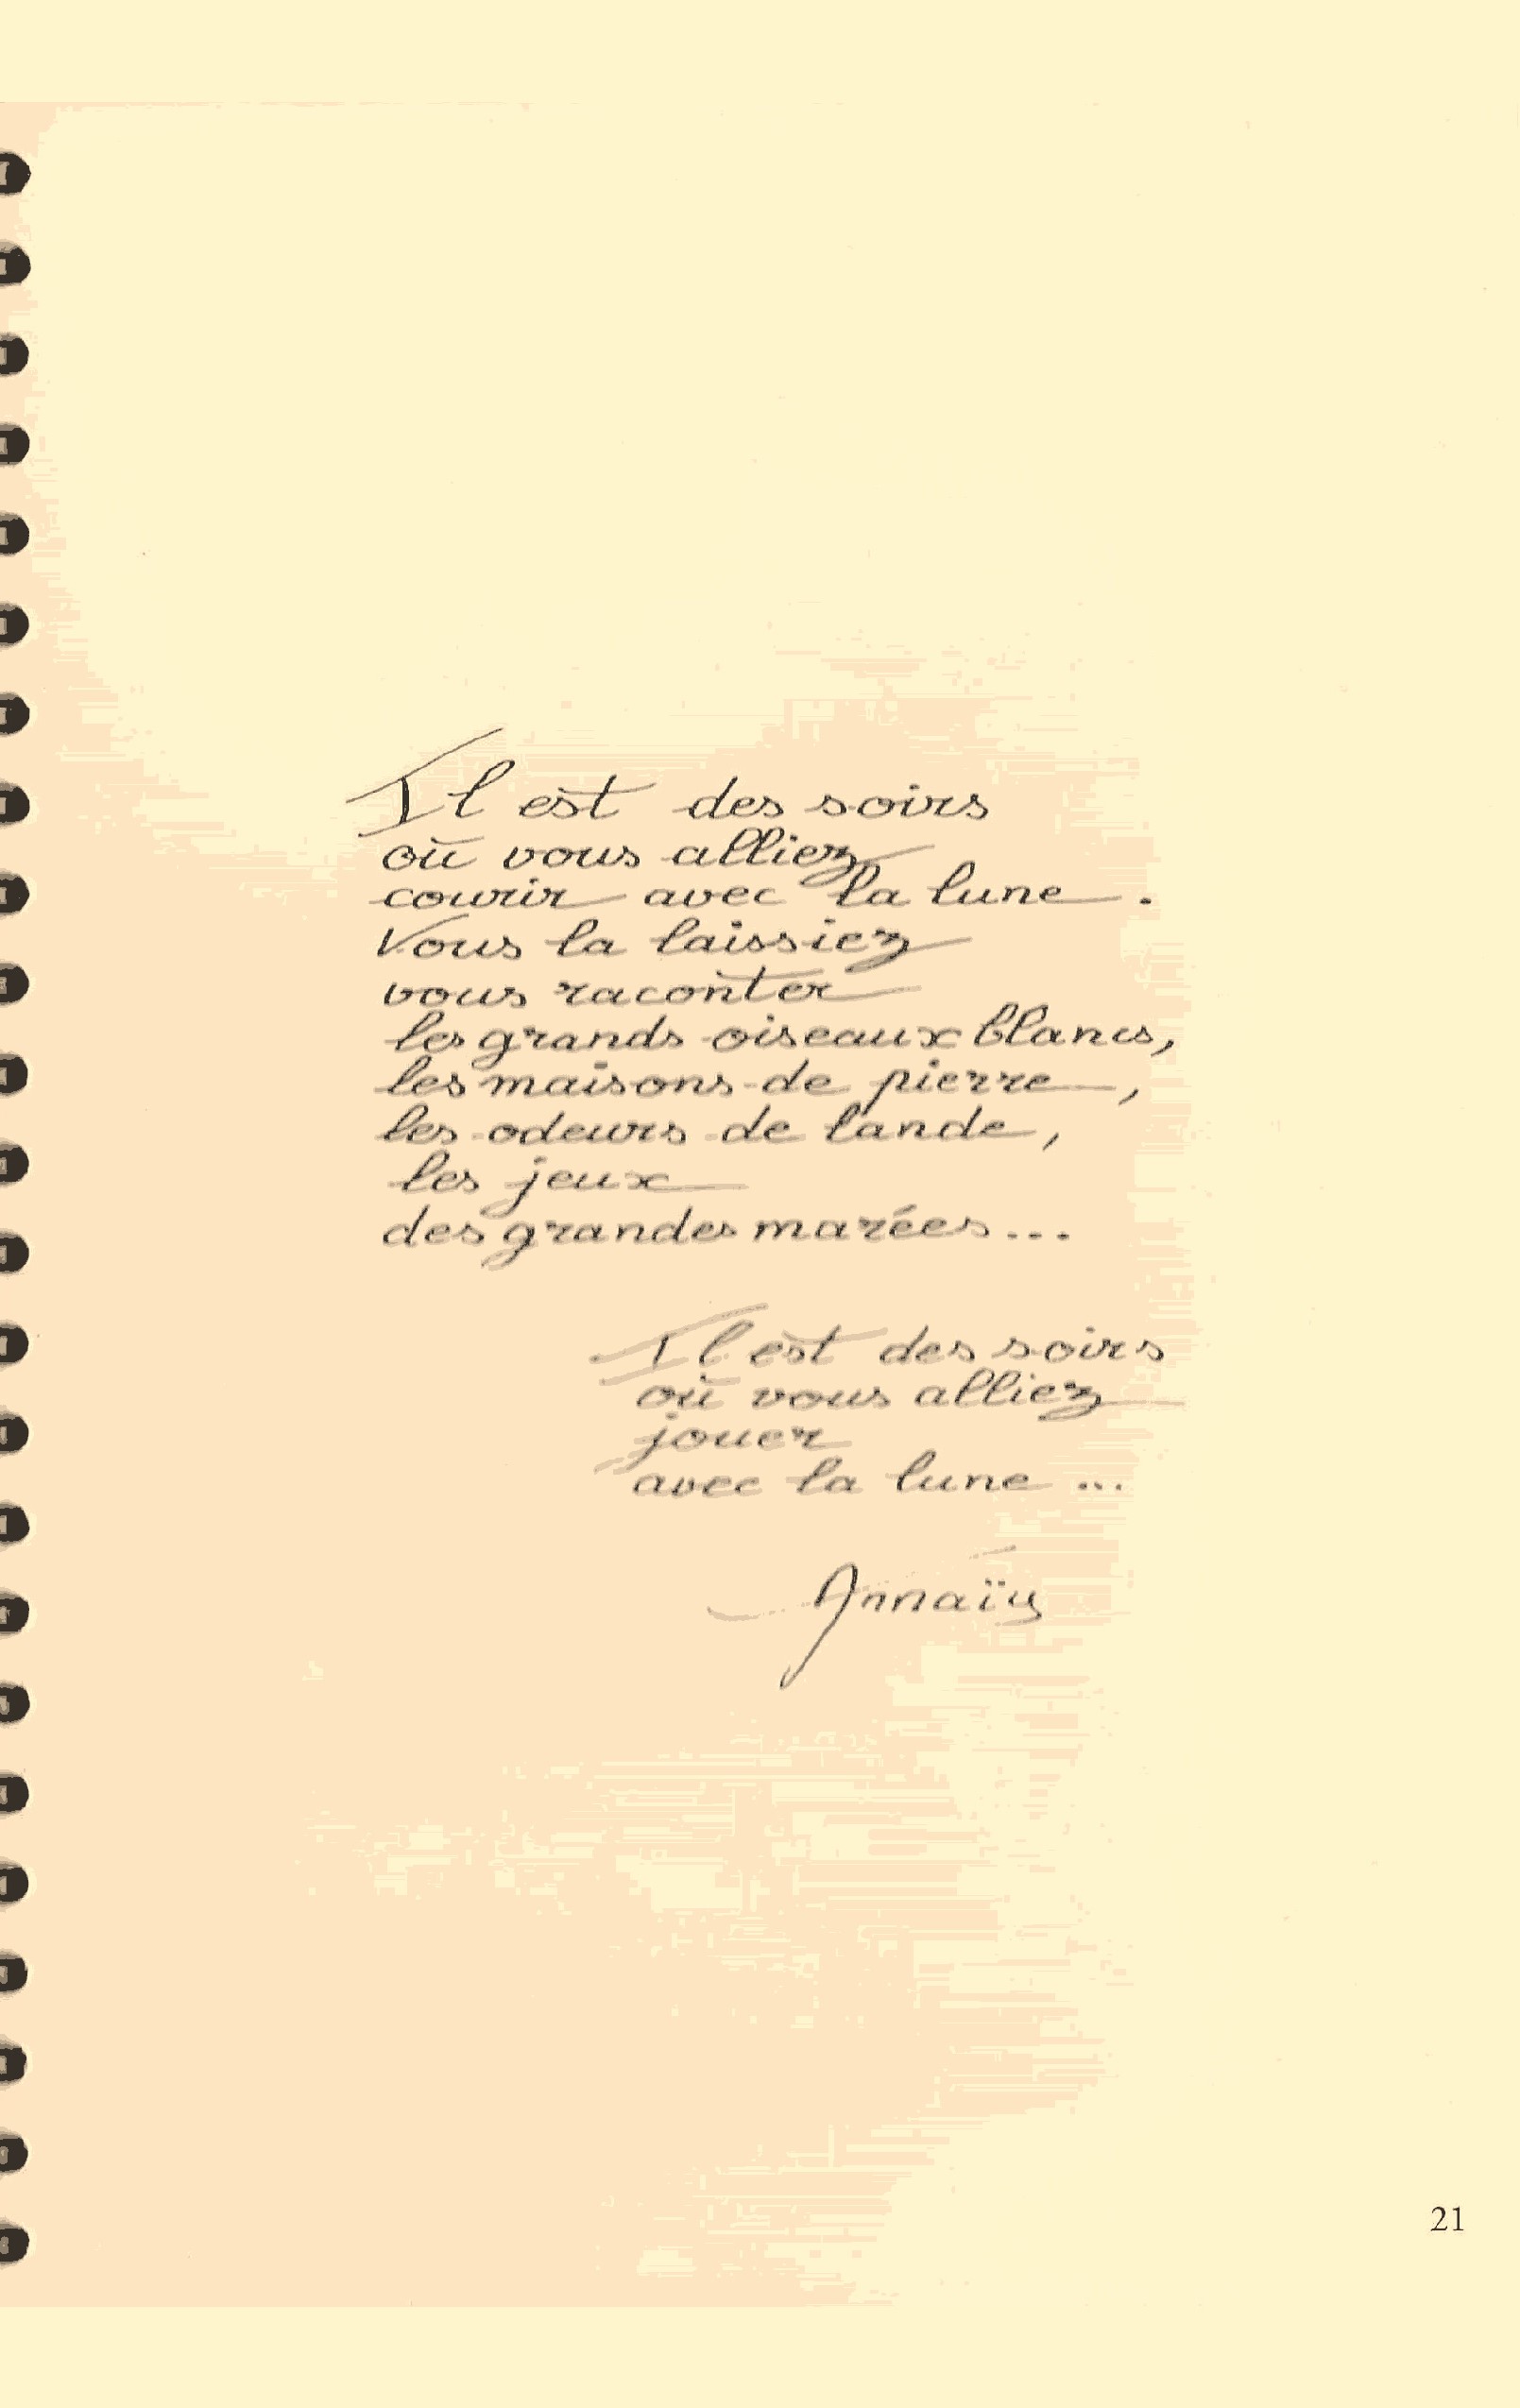 Il est des soirs
où vous alliez
courir avec la lune.
Vous la laissiez
vous raconter
les grands oiseaux blancs,
les maisons de pierre,
les odeurs de lande,
les jeux
des grandes marées...
Il est des soirs
où vous alliez
jouer
avec la lune ...
Annaïg
21